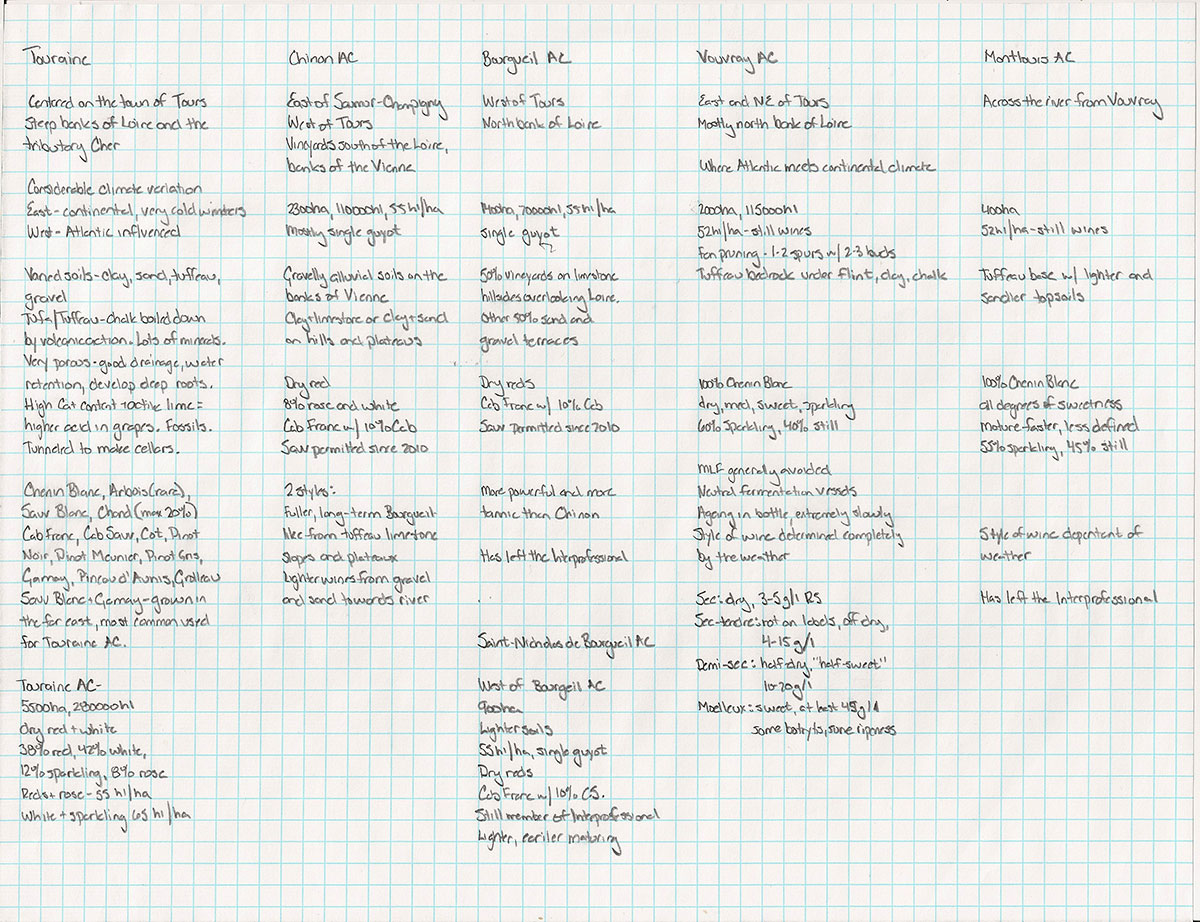 Touraine
Centered on the town of Tours
Steep banks of Loire and the
tributary Cher
Considerable climate variation
East - continental, very cold winters
West - Atlantic influenced
Varied soils - clay, sand, tuffeau,
gravel
Tufa/Tuffeau - chalk boiled down
by volcanic action. Lots of minerals.
Very porous - good drainage, water
retention, develop deep roots.
High Cat content + active lime =
higher acid in grapes. Fossils.
Tunneled to make cellars.
Chenin Blanc, Arbois (rare),
Sauv Blanc, Chard (max 20%)
Cab Franc, Cab Sauv, Cot, Pinot
Noir, Pinot Meunier, Pinot Gris,
Gamay, Pineau d'Aunis, Grolleau
Sauv Blanc + Gamay - grown in
the far east, most common used
for Touraine AC.
Touraine AC -
5500ha, 280000hl
dry red + white
38% red, 42% white,
12% sparkling, 8% rose
Reds + rose - 55 hl/ha
White + sparkling 65 hl/ha
Chinon AC
East of Saumur-Champigny
West of Tours
Vineyards south of the Loire,
banks of the Vienne
2300ha, 110000hl, 55 hl/ha
Mostly single guyot
Gravelly alluvial soils on the
banks of Vienne
Clay + limestone or clay + sand
on hills and plateaus
Dry red
8% rose and white
Cab Franc w/ 10% Cab
Sauv permitted since 2010
2 styles:
Fuller, long-term Bourgueil-
like from tuffeau limestone
slopes and plateaux
Lighter wines from gravel
and sand towards river
Bourgueil AC
West of Tours
North bank of Loire
1400ha, 70000hl, 55hl/ha
single guyot
50% vineyards on limestone
hillsides overlooking Loire.
Other 50% sand and
gravel terraces
Dry reds
Cab Franc w/ 10% Cab
Sauv permitted since 2010
More powerful and more
tannic than Chinon
Has left the Interprofessional
Saint-Nicholas de Bourgueil AC
West of Bourgeil AC
900ha
Lighter soils
55hl/ha, single guyot
Dry reds
Cab Franc w/ 10% CS.
Still member of Interprofessional
Lighter, earlier maturing
Vouvray AC
East and NE of Tours
Mostly north bank of Loire
Where Atlantic meets continental climate
2000ha, 115000hl
52hl/ha - still wines
Fan pruning - 1-2 spurs w/ 2-3 buds
Tuffeau bedrock under flint, clay, chalk
100% Chenin Blanc
dry, med, sweet, sparkling
60% sparkling, 40% still
MLF generally avoided
Neutral fermentation vessels
Ageing in bottle, extremely slowly
Style of wine determined completely
by the weather
Sec: dry, 3-5g/l RS
Sec-tendre: not on labels, off dry,
4-15 g/l
Demi-sec: half-dry, "half-sweet"
10-20g/l
Moelleux: sweet, at least 45g/l
some botrytis, some ripeness
Montlouis AC
Across the river from Vouvray
400ha
52hl/ha - still wines
Tuffeau base w/ lighter and
sandier topsoils
100% Chenin Blanc
all degrees of sweetness
mature faster, less defined
55% sparkling, 45% still
Style of wine dependent of
weather
Has left the Interprofessional